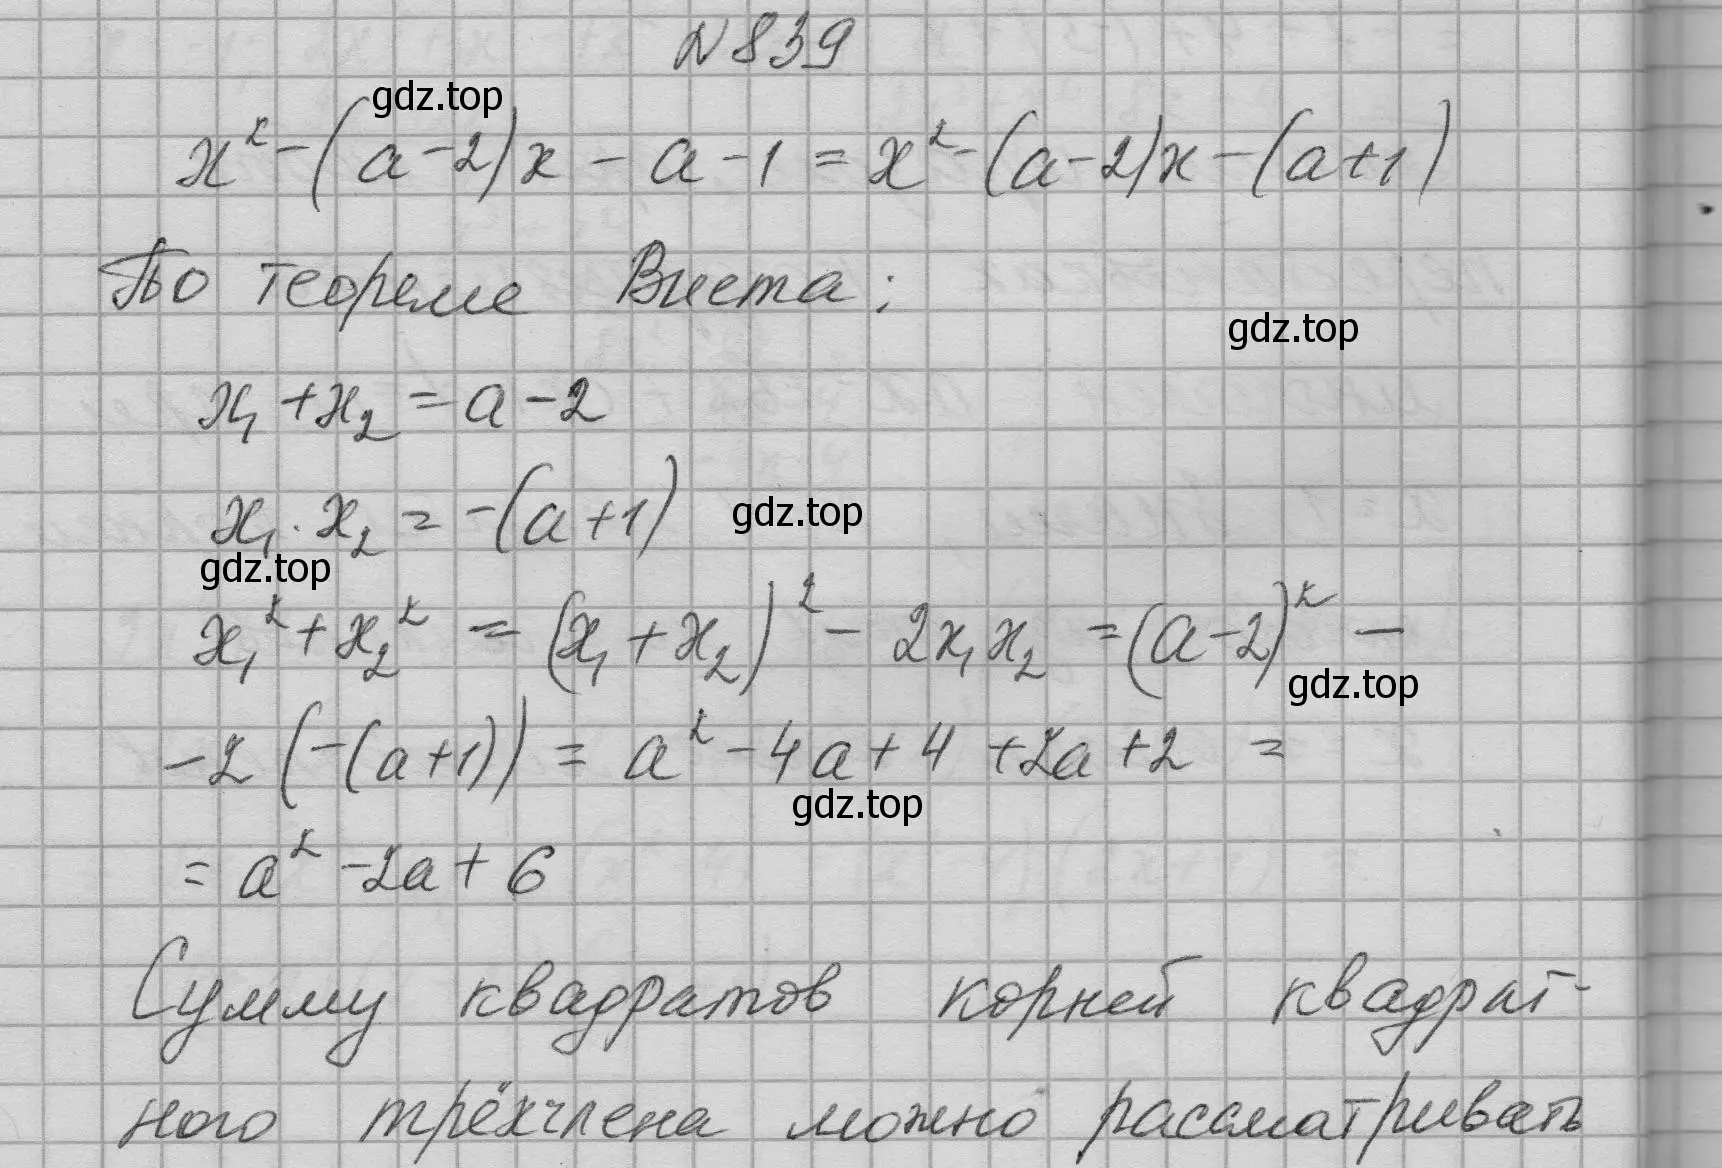 №839
gdz.top
x² - (a - 2)x - a - 1 = x² - (a - 2)x - (a + 1)
По теореме Виета:
gdz.top
x₁ + x₂ = a - 2
x₁ · x₂ = -(a + 1)
gdz.top
gdz.top
x₁² + x₂² = (x₁ + x₂)² - 2x₁x₂ = (a - 2)² -
gdz.top
- 2(-(a + 1)) = a² - 4a + 4 + 2a + 2 =
gdz.top
= a² - 2a + 6
Сумму квадратов корней квадрат-
ного трёхчлена можно рассматривать